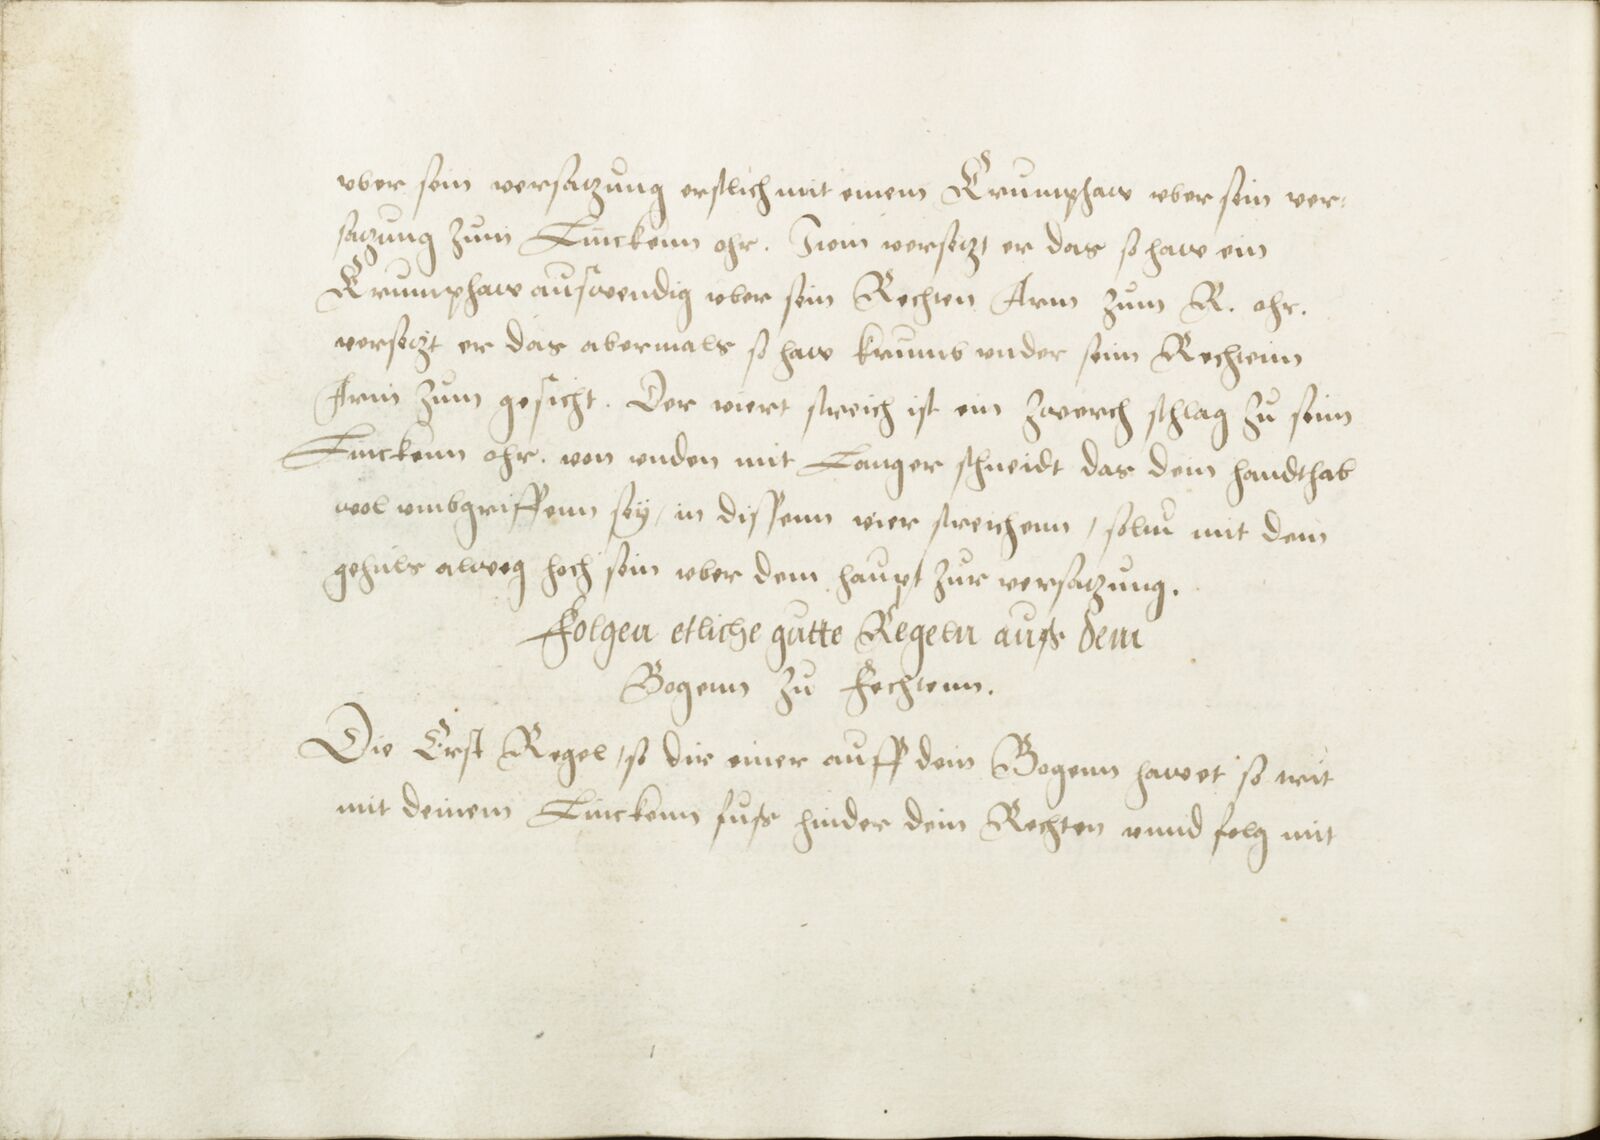 vber sein versatzung erstlich mit einem Crumphaw vber sein ver:
satzung zum Linckenn ohr. Item versetzt er das so haw ein
Crumphaw auswendig vber sein Rechten Arm zum R. ohr.
versetzt er das abermals so haw krumb vnder seim Rechtenn
Arm zum gesicht. Der viert streich ist ein zwerch schlag zu seim
Linckenn ohr. von vnden mit Langer schneidt das dein handthab
wol vmbgriffenn sey / in dissenn vier streichenn / soltu mit dein
gehiltz alweg hoch sein vber dem haupt zur versatzung.
Folgen etliche gutte Regeln auss dem
Bogenn zu fechtenn.
Die Erst Regel / so dir einer auff dein Bogenn hawet so trit
mit deinem Linckenn fuss hinder dein Rechten vnnd folg mit